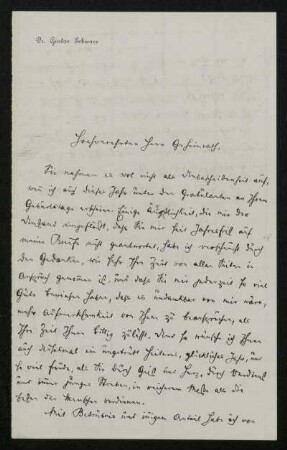 Dr. Gustav
Hochverehrter Herr Geheimrath,
Sie nehmen es wol nicht als Unbescheidenheit auf,
wenn ich auch dieses Jahr unter den Gratulanten an Ihrem
Geburtstage erscheine. Einige Ängstlichkeit, die mir der
Umstand einflößt, daß Sie mir seit Jahresfrist auf
meine Briefe nicht geantwortet, habe ich verscheucht durch
den Gedanken, wie sehr Ihre Zeit von allen Seiten in
Anspruch genommen ist, und daß Sie mir jederzeit so viel
Güte bewiesen haben, daß es undankbar von mir wäre,
mehr Aufmerksamkeit von Ihnen zu beanspruchen, als
Ihre Zeit Ihnen billig zuläßt. Und so wünsche ich Ihnen
auch diesmal ein ungetrübt heiteres, glückliches Jahr, und
so viel Freude, als Sie durch Geist und Herz, durch Verdienst
und Streben, in reicherem Maße als die
der Menschen verdienen.
Mit Betrübnis und innigem Anteil habe ich von